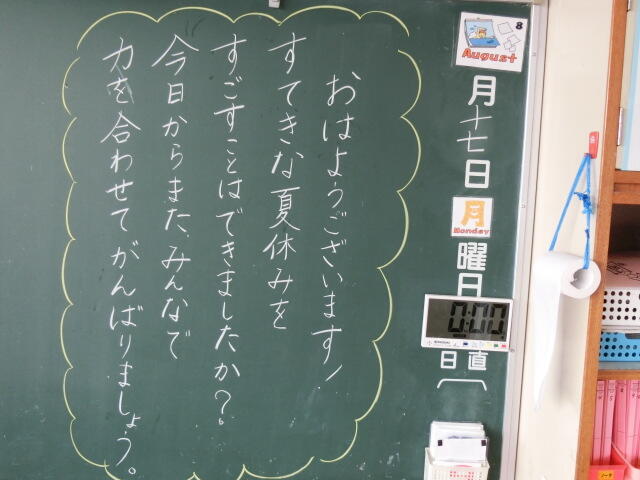 8
August
月十七日
月
Monday
曜日
0:00
日直
おはようございます!
すてきな夏休みを
すごすことはできましたか?
今日からまた、みんなで
力を合わせてがんばりましょう。